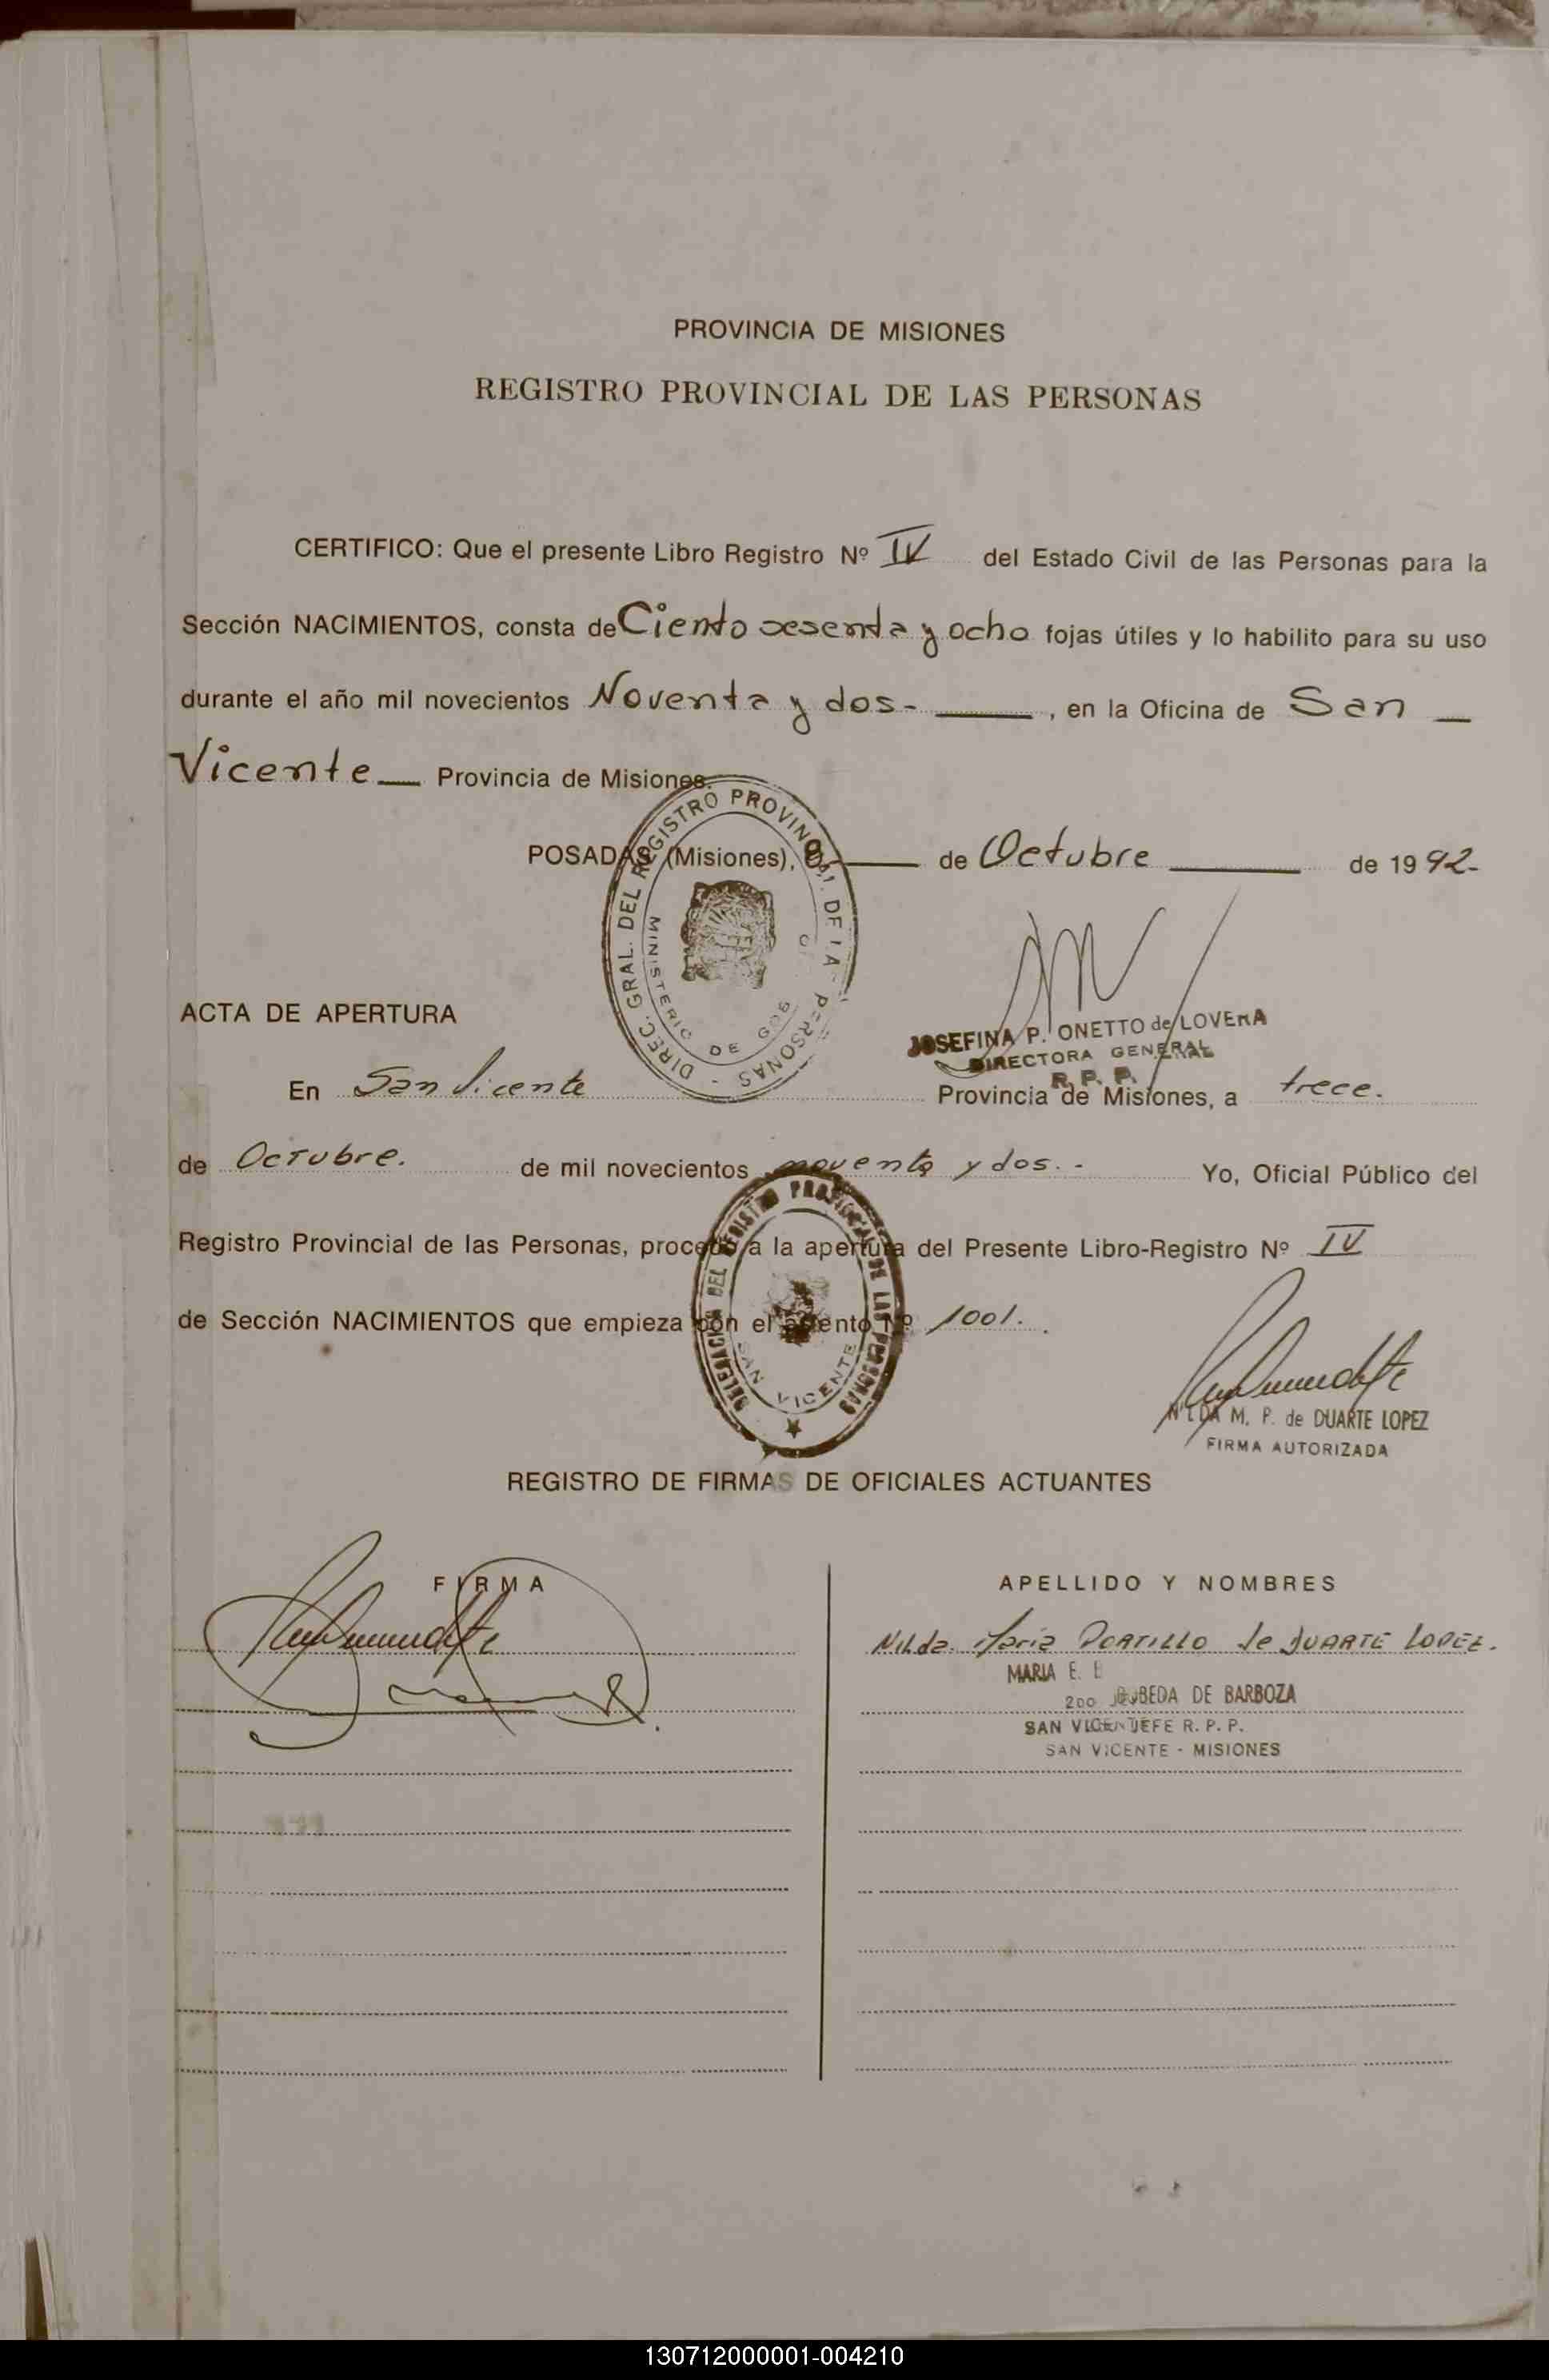 PROVINCIA DE MISIONES
REGISTRO PROVINCIAL DE LAS PERSONAS
CERTIFICO: Que el presente Libro Registro Nº IV del Estado Civil de las Personas para la
Sección NACIMIENTOS, consta de Ciento sesenta y ocho fojas útiles y lo habilito para su uso
durante el año mil novecientos Noventa y dos- , en la Oficina de San
Vicente Provincia de Misiones.
POSADAS (Misiones), 8 de Octubre de 1992-
DIREC. GRAL. DEL REGISTRO PROVINCIAL DE LA PERSONAS
MINISTERIO DE GOB
JOSEFINA P. ONETTO de LOVERA
DIRECTORA GENERAL
R. P. P.
ACTA DE APERTURA
En San Vicente Provincia de Misiones, a trece.
de Octubre. de mil novecientos noventa y dos.- Yo, Oficial Público del
Registro Provincial de las Personas, procedo a la apertura del Presente Libro-Registro Nº IV
de Sección NACIMIENTOS que empieza con el asiento Nº 1001.
DELEGACION DEL REGISTRO PROVINCIAL DE LAS PERSONAS
SAN VICENTE
NILDA M. P. de DUARTE LOPEZ
FIRMA AUTORIZADA
REGISTRO DE FIRMAS DE OFICIALES ACTUANTES
FIRMA
APELLIDO Y NOMBRES
Nilda María PORTILLO de DUARTE LOPEZ.
MARIA E.
DE BARBOZA
SAN VICEN JEFE R. P. P.
SAN VICENTE - MISIONES
130712000001-004210